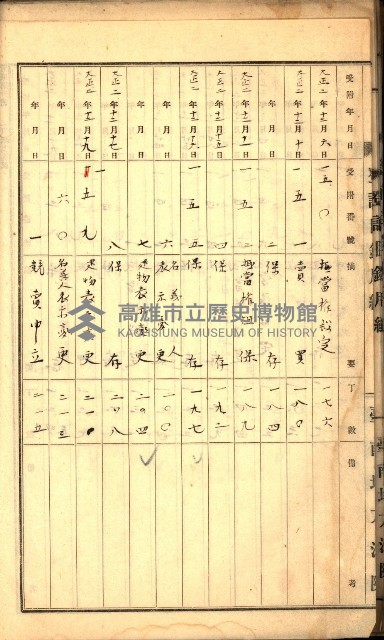 受附年月日 受附番號 摘要 丁數 備考
大正二年十二月六日 一五〇 抵當權設定 一七六
大正二年十二月十日 一 賣買 一八〇
年月日 二 保存 一八四
大正二年十二月十一日 一五二 抵當權 保 一八九
大正二年十二月十五日 四 保存 一九二
大正二年十二月十六日 一五五 保存 一九七
年月日 六 名義人表示變更 二〇〇
年月日 七 建物表示變更 二〇四
大正二年十二月十七日 八 保存 二〇八
大正二年十二月十九日 一五九 建物表示變更 二一〇
年月日 六〇 名義人表示變更 二一三
年月日 一 競賣申立 二一五
高雄市立歷史博物館
KAOHSIUNG MUSEUM OF HISTORY